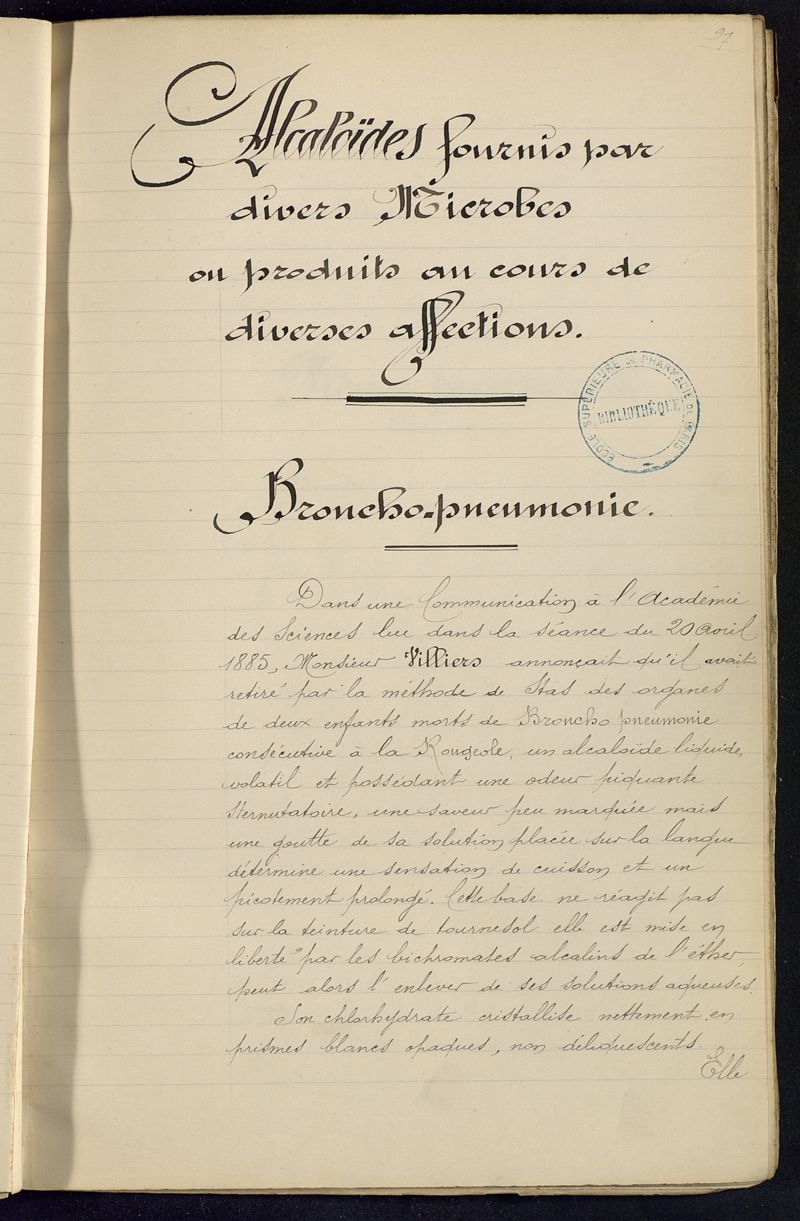 97
Alcaloïdes fournis par
divers Microbes
ou produits au cours de
diverses affections.
ECOLE SUPÉRIEURE DE PHARMACIE DE PARIS
BIBLIOTHÈQUE
Broncho-pneumonie.
Dans une Communication à l'Académie
des Sciences lue dans la séance du 20 Avril
1885, Monsieur Villiers annonçait qu'il avait
retiré par la méthode de Stas des organes
de deux enfants morts de Broncho pneumonie
consécutive à la Rougeole, un alcaloïde liquide,
volatil et possédant une odeur piquante
sternutatoire, une saveur peu marquée mais
une goutte de sa solution placée sur la langue
détermine une sensation de cuisson et un
picotement prolongé. Cette base ne réagit pas
sur la teinture de tournesol elle est mise en
liberté par les bichromates alcalins de l'éther
peut alors l'enlever de ses solutions aqueuses.
Son chlorhydrate cristallise nettement en
prismes blancs opaques, non déliquescents.
Elle